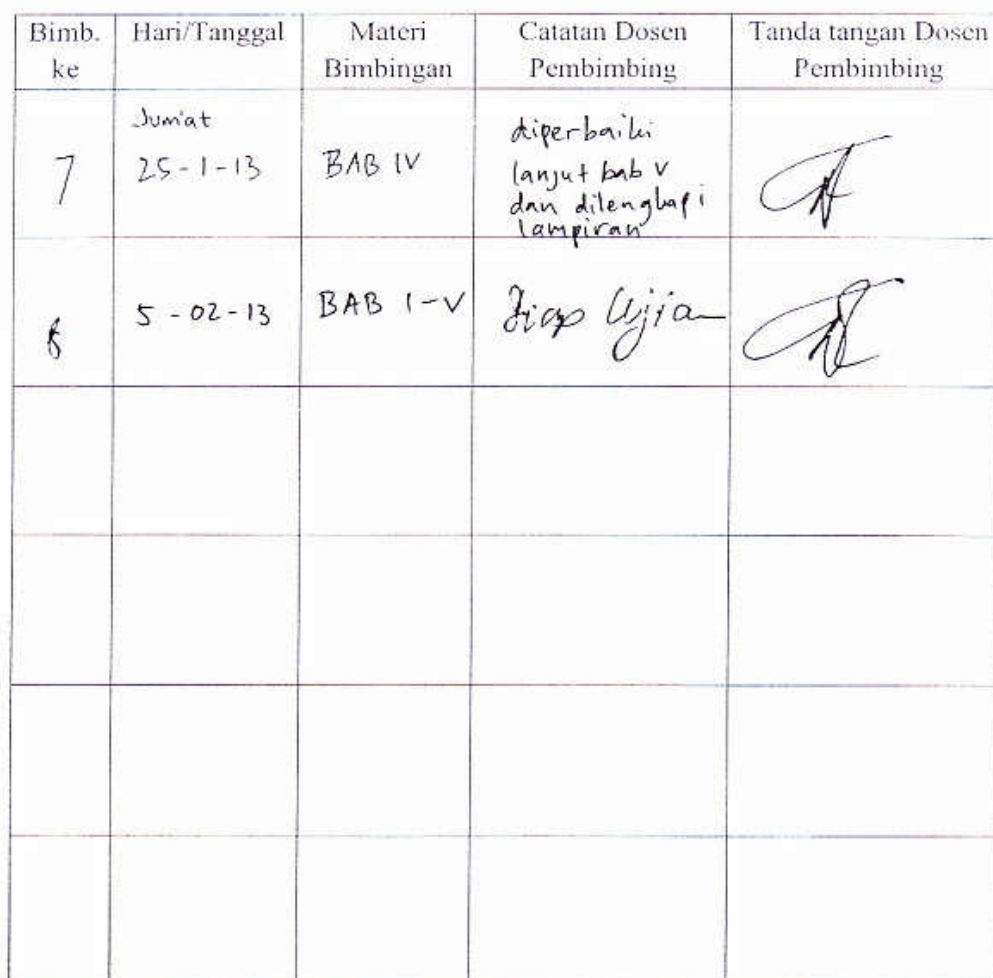 Bimb. ke
Hari/Tanggal
Materi Bimbingan
Catatan Dosen Pembimbing
Tanda tangan Dosen Pembimbing
7
Jum'at
25-1-13
BAB IV
diperbaiki
lanjut bab V
dan dilengkapi
lampiran
8
5-02-13
BAB I-V
Siap Ujian